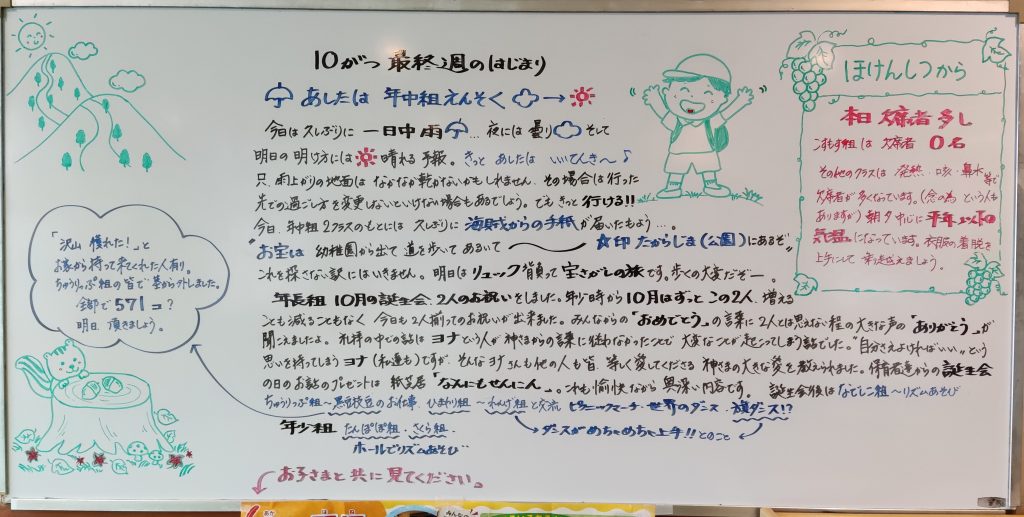 10がつ 最終週のはじまり
あしたは 年中組えんそく →
今日は久しぶりに 一日中雨 … 夜には曇り そして
明日の明け方には 晴れる予報。きっと あしたは いいてんき〜♪
只、雨上がりの地面は なかなか乾かないかもしれません。その場合は行った
先での過ごし方を変更しないといけない場合もあるでしょう。でも きっと 行ける!!
今日、年中組2クラスのもとには 久しぶりに 海賊からの手紙が届いたもよう…。
"お宝は 幼稚園から出て 道を歩いて あるいて 〜 ☆印 たからじま(公園)にあるぞ"
これを探さない訳にはいきません。明日は リュック背負って 宝さがしの旅です。歩くの大変だぞー。
年長組 10月の誕生会 2人のお祝いをしました。年少時から10月はずっと この2人。増える
ことも減ることもなく 今日も2人揃ってのお祝いが出来ました。みんなからの「おめでとう」の言葉に 2人とは思えない程の大きな声の「ありがとう」が
聞こえましたよ。礼拝の中での話は ヨナという人が 神さまからの言葉に従わなかったことで 大変なことが起こってしまう話でした。"自分さえよければいい"という
思いを持ってしまうヨナ(私達も)ですが、そんなヨナさんも他の人も皆、等しく愛してくださる 神さまの大きな愛を教えられました。保育者達からの誕生会
の日のお話のプレゼントは 紙芝居「なんにもせんにん」。これも愉快ながら 奥深い内容です。誕生会後は なでしこ組〜リズムあそび
ちゅうりっぷ組〜黒豆枝豆のお仕事 ひまわり組 〜れんげ組と交流 ピクニックマーチ・世界のダンス・旗ダンス!?
年少組 たんぽぽ組・さくら組・
→ダンスがめちゃめちゃ上手!!とのこと
ホールでリズムあそび
お子さまと共に見てください。
「沢山 穫れた!」と
お家から持って来てくれた人有り。
ちゅうりっぷ組の皆で茎から外しました。
全部で571コ?
明日、頂きましょう。
ほけんしつから
本日 欠席者多し
こすもす組は 欠席者 0名
その他のクラスは 発熱・咳・鼻水等で
欠席者が多くなっています。(念の為という人も
ありますが) 朝夕中心に 平年以下の
気温になっています。衣服の着脱を
上手にして 乗り越えましょう。
みんなの